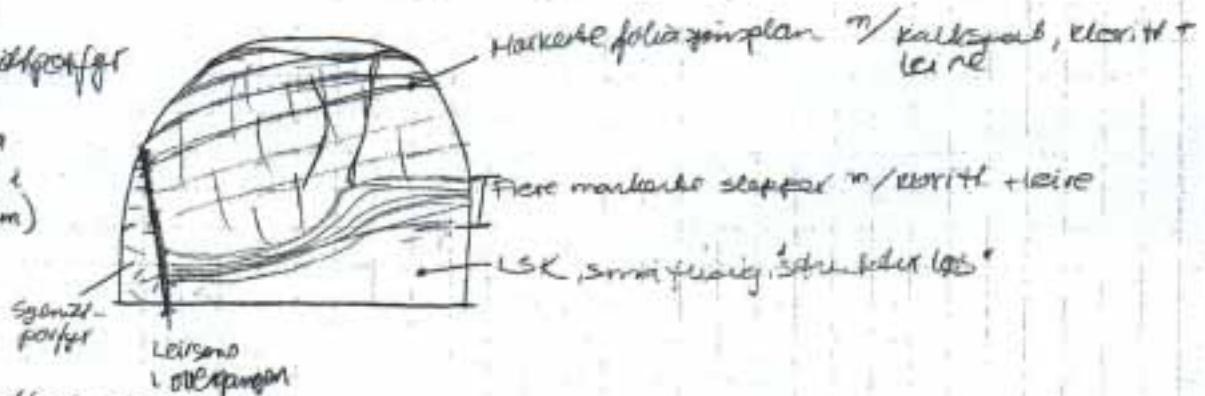 Markerte foliasjonsplan m/ kalkspat, kloritt +
leire
Flere markerte slepper m/ kloritt + leire
LSK, småflisig, "strukturløs"
m)
Syenitt-
porfyr
Leirsone
i overgangen